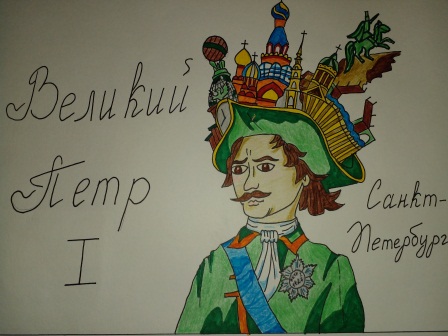 Великий
Петр
I
Санкт-
Петербург